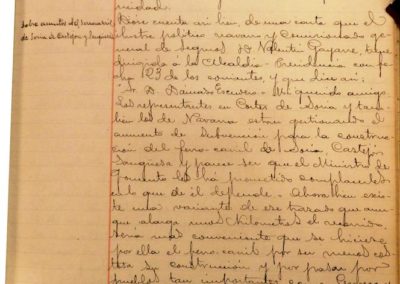 nidad.
Sobre asuntos del ferrocarril
de Soria Castejón y Sangüesa
Dióse cuenta así bien, de una carta que el
ilustre político navarro y Comisario ge-
neral de Seguros D. Valentín Gayarre, ha
dirigido á la Alcaldía-Presidencia con fe-
cha 23 de los corrientes, y que dice así:
"Sr. D. Escudero - Mi querido amigo:
Los representantes en Cortes de Soria y tam-
bien los de Navarra estan gestionando el
aumento de Subvención para la construc-
ción del ferro-carril de Soria Castejón
Sangüesa y parece ser que el Ministro de
Fomento les há prometido complacerles
en lo que de él depende. - Ahora bien exis-
te una variante de ese trazado que aun-
que alarga unos Kilometros el recorrido
sería mas conveniente que se hiciese
por ella el ferro-carril por ser menos cos-
tosa su construcción y por pasar por
pueblos tan importantes